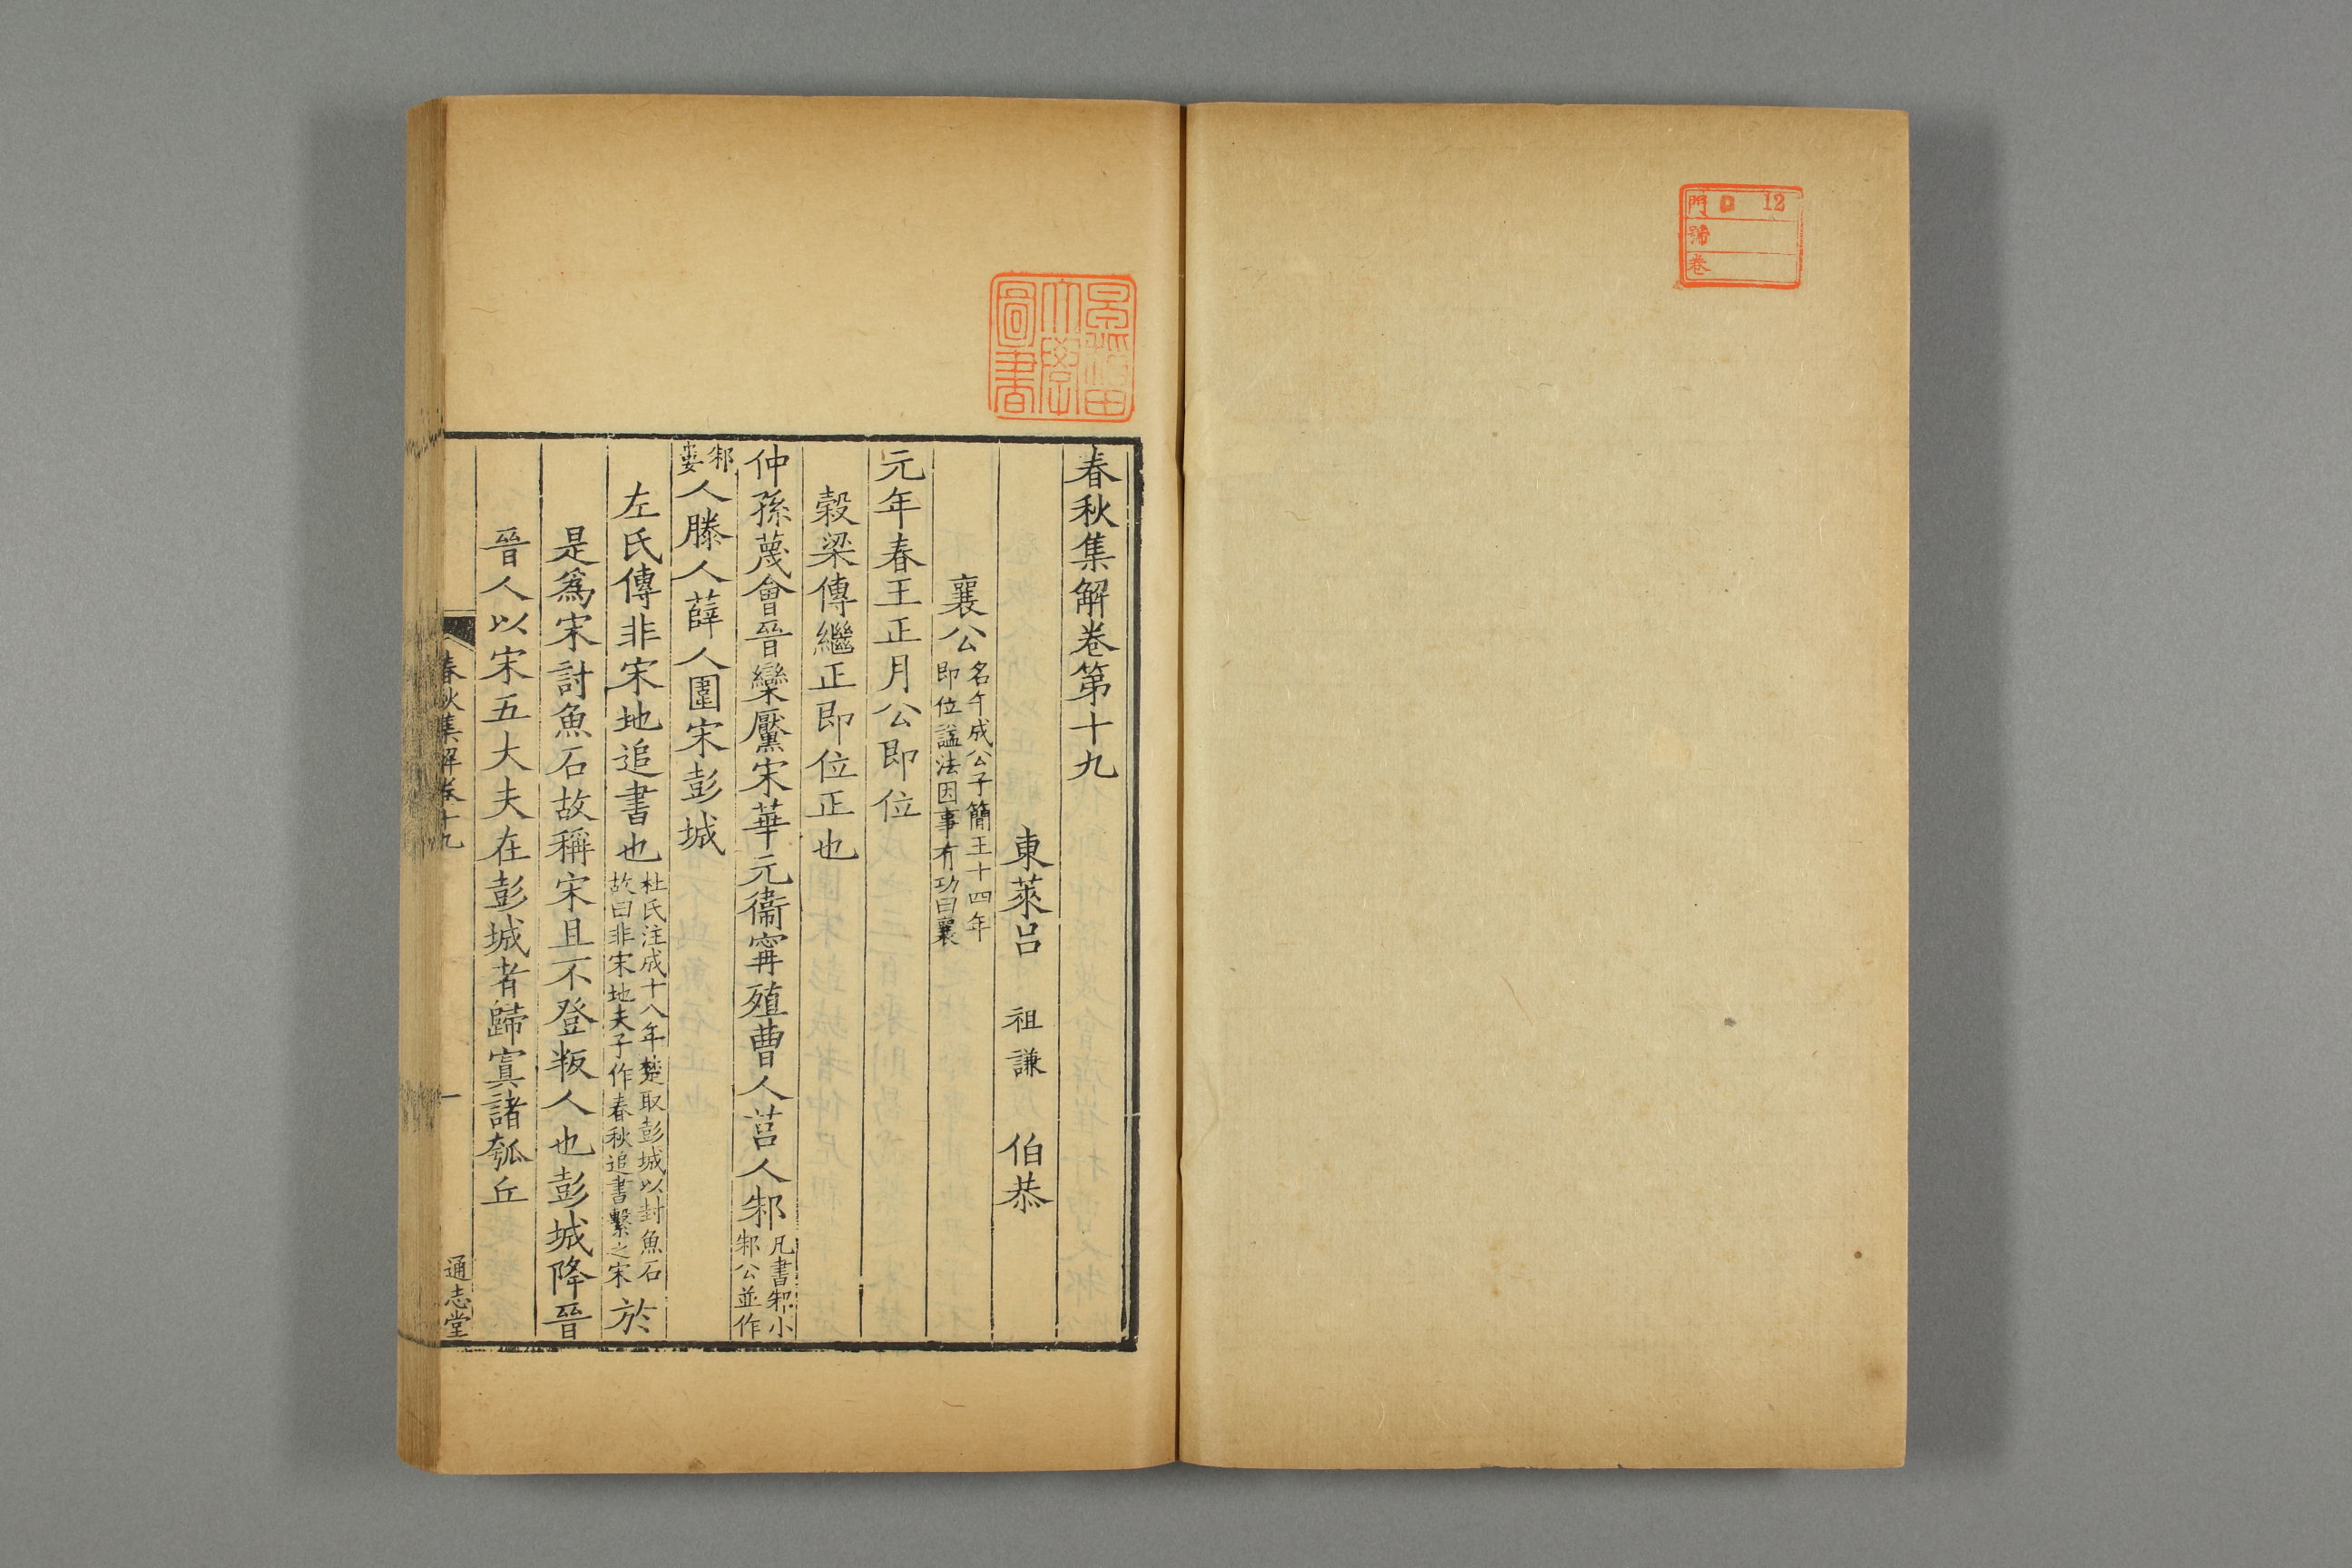 門 口 12
號
卷
早稲田大學圖書
春秋集解卷第十九
東萊呂 祖謙 伯恭
襄公名午成公子簡王十四年
即位謚法因事有功曰襄
元年春王正月公即位
穀梁傳繼正即位正也
仲孫蔑會晉欒黶宋華元衞甯殖曹人莒人邾凡書邾小
邾公並作
邾
婁人滕人薛人圍宋彭城
左氏傳非宋地追書也杜氏注成十八年楚取彭城以封魚石
故曰非宋地夫子作春秋追書繫之宋於
是爲宋討魚石故稱宋且不登叛人也彭城降晉
晉人以宋五大夫在彭城者歸寘諸瓠丘
春秋集解卷十九
一
通志堂